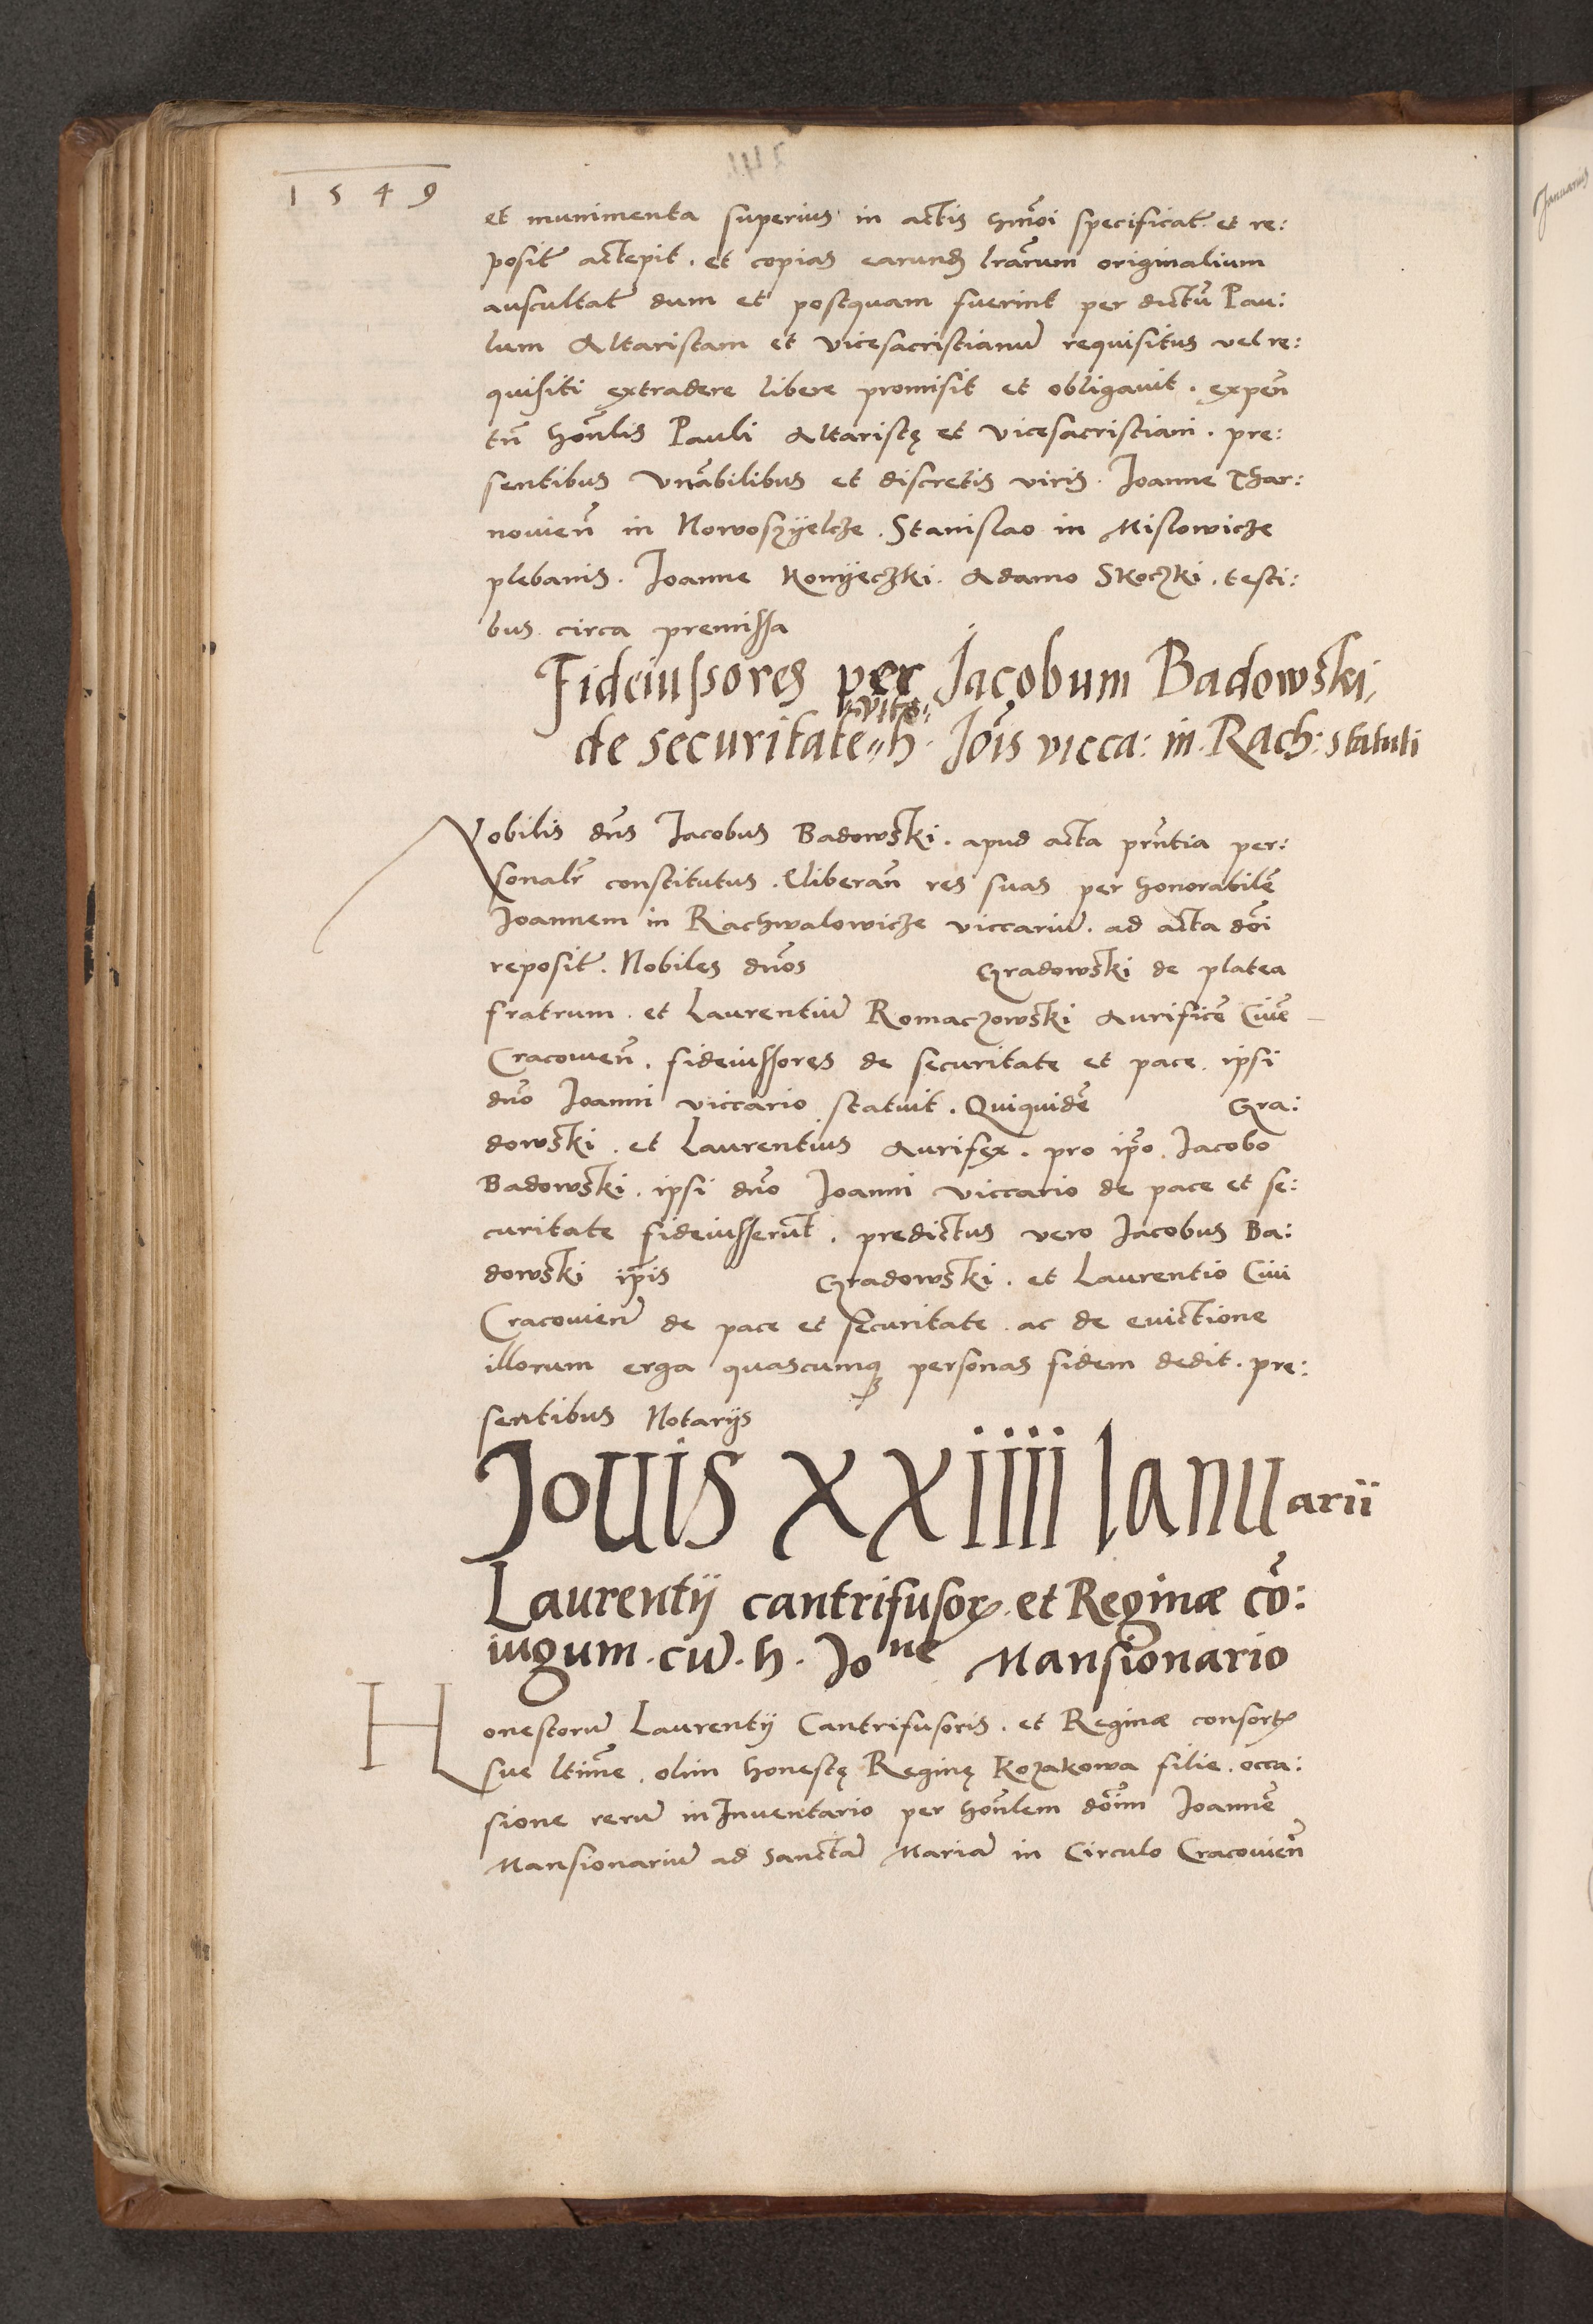 1549
et munimenta superius in actis hmōi specificat̃ et re:
posit̃ acčepit. et copias earund̨ lrārum originalium
auscultat̃ dum et postquam fuerint per dictū Pau:
lum Altaristam et vicesacristianū requisitus vel re:
quisiti extradere libere promisit et obligavit. expeñ
tñ hoñlis Pauli Altaristę et vicesacristiani. pre:
sentibus vnābilibus et discretis viris. Joanne Thar:
nowieñ in Nowoszyelcze. Stanislao in Mislowicze
plebanis. Joanne Konyeczki. Adamo Skoczki. testi:
bus circa premissa
Fideiussores per Jacobum Badowski
de securitate h. Joīs vicca: in Rach: statuti
Nobilis dñs Jacobus Badowski. apud acta prñtia per:
sonalr̃ constitutus. Eliberañ res suas per honorabilē
Joannem in Rachwalowicze viccariū. ad acta dōi
reposit̃. Nobiles dños Gradowski de platea
fratrum. et Laurentiū Romaczowski Aurificē Civē
Cracovieñ. fideiussores de securitate et pace. ipsi
dño Joanni viccario statuit. Quiquidē Gra:
dowski. et Laurentius Aurifex. pro ip̄o Jacobo
Badowski. ipsi dño Joanni viccario de pace et se:
curitate fideiusserūt. predictus vero Jacobus Ba:
dowski ip̄is Gradowski. et Laurentio Civi
Cracovieñ de pace et securitate. ac de evictione
illorum erga quascumq̨ personas fidem dedit. pre:
sentibus Notarijs
Jovis XXiiii Januarii
Laurentij cantrifusoꝝ et Reginæ cō:
iugum. cū. h. Joⁿᵉ Mansionario
Honestorū Laurentij Cantrifusoris. et Reginæ consortꝭ
sue ltīme. olim honestę Reginę Kozakowa filie. occa:
sione rerū in Inventario per hoñlem dōim Joannē
Mansionariū ad sanctā Mariā in Circulo Cracovieñ
Januarius